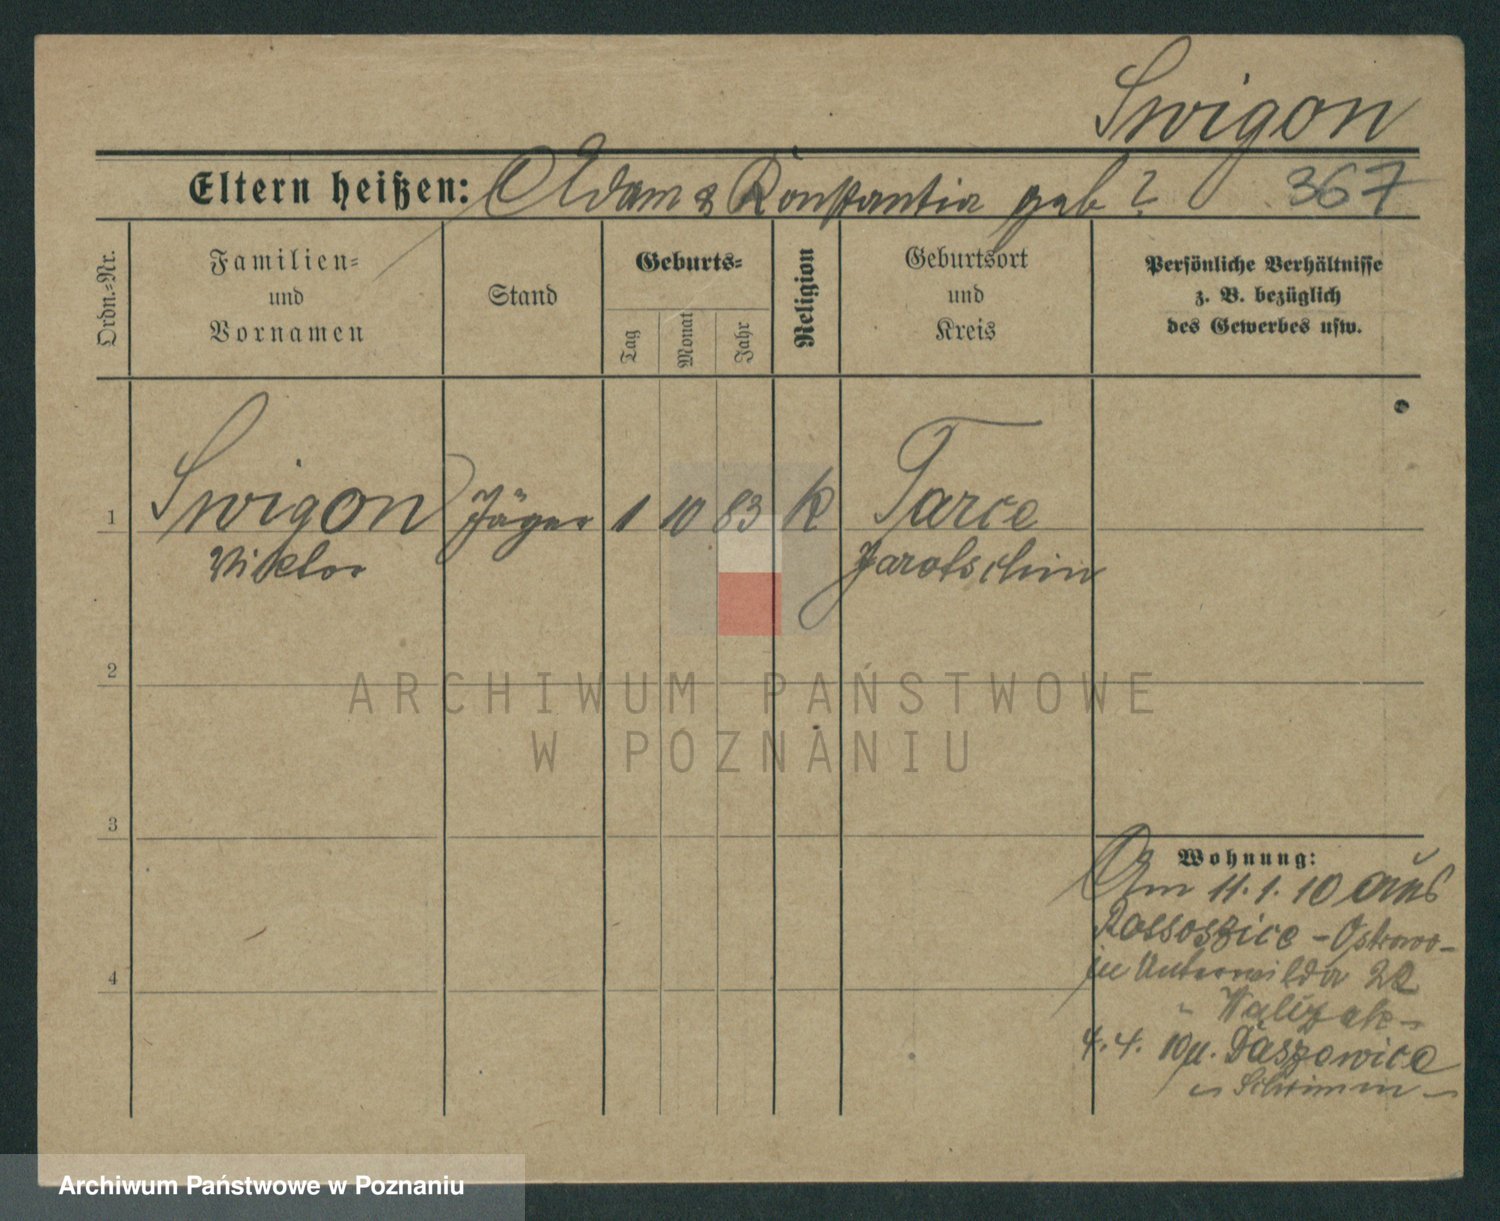 Swigon
Eltern heißen: Adam & Konstantia geb ?
367
Ordn.-Nr.
Familien- und Vornamen
Stand
Geburts-
Tag
Monat
Jahr
Religion
Geburtsort und Kreis
Persönliche Verhältnisse
z. B. bezüglich
des Gewerbes usw.
1 Swigon Jäger 1 10 83 K Tarce
Viktor Jarotschin
2
ARCHIWUM PAŃSTWOWE
W POZNANIU
3
4
Wohnung:
Am 11.1.10 aus
Rossoszice - Ostrowo -
in Unterwilda 22
" Walizak -
4.4. 10 n. Daszewice
- Schrimm -
Archiwum Państwowe w Poznaniu